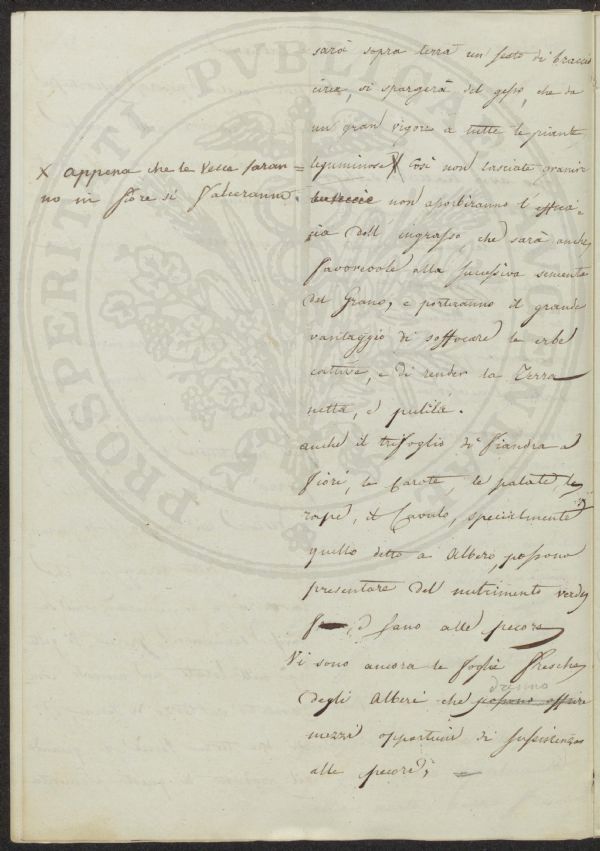 sarà sopra terra un sesto di braccio
circa, si spargerà del gesso, che da
un gran vigore a tutte le piante
leguminose X Così non lasciate granir
X appena che le Vecce saran =
no in fiore si falceranno.
non assorbiranno l' effica =
cia dell ingrasso, che sarà anche
favorevole alla successiva sementa
del Grano, e porteranno il grande
vantaggio di soffocare le erbe
cattive, e di render la Terra
netta, e pulita.
anche il trifoglio di Fiandra a
fiori, le Carote, le patate, le
rape, il Cavolo, specialmente
quello detto a Albero, possono
presentare del nutrimento verde
e sano alle pecore
Vi sono ancora le foglie fresche
degli Alberi che possono offrire
mezzi opportuni di sussistenza
alle pecore;
PROSPERITATI PVBLICAE